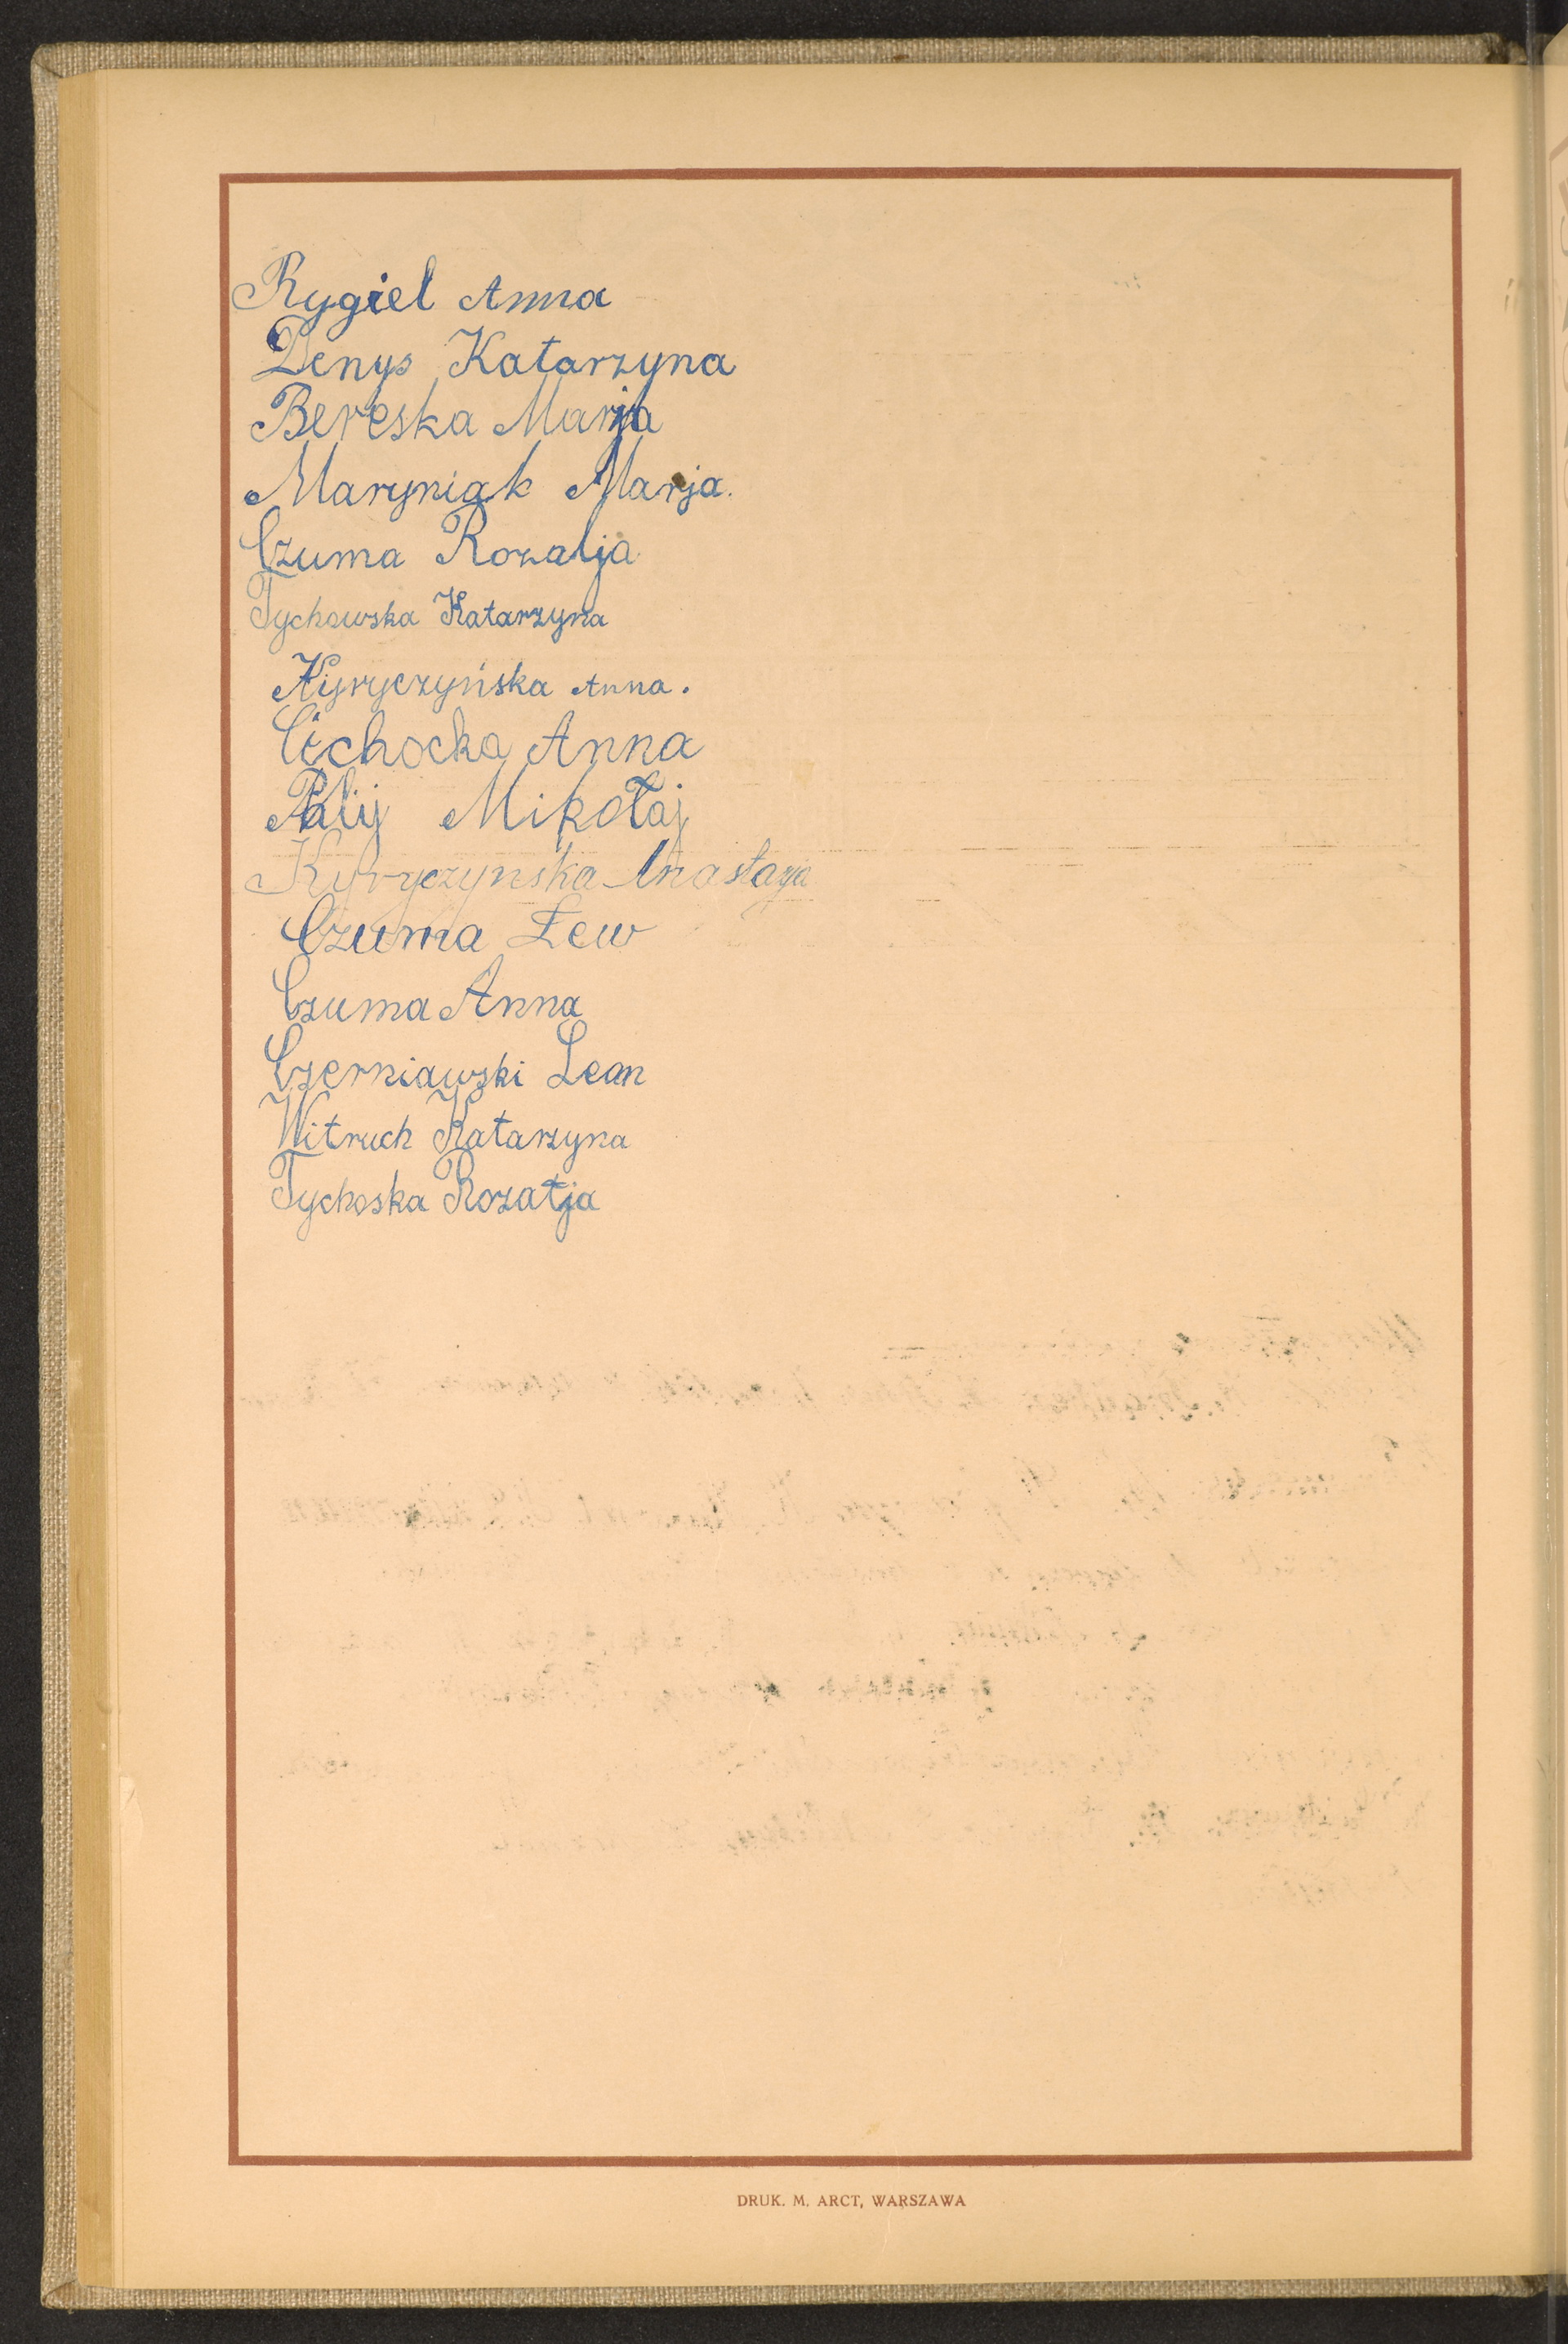 Rygiel Anna
Denys Katarzyna
Bereska Marja
Maryniak Marja.
Czuma Rozalja
Tychowska Katarzyna
Kyryczyńska Anna.
Cichocka Anna
Palij Mikołaj
Kyryczynska Anastazja
Czuma Łew
Czuma Anna
Czerniawski Leon
Witruch Katarzyna
Tychoska Rozatja
DRUK. M. ARCT, WARSZAWA